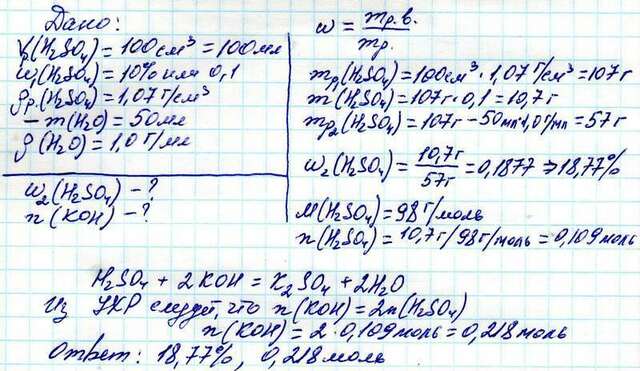 Дано:
Vр(H₂SO₄) = 100см³ = 100мл
w₁(H₂SO₄) = 10% или 0,1
ρр.(H₂SO₄) = 1,07г/см³
– m(H₂O) = 50мл
ρ(H₂O) = 1,0г/мл
w₂(H₂SO₄) – ?
n(KOH) – ?
w = mр.в. / mр.
mр₁(H₂SO₄) = 100см³ · 1,07г/см³ = 107г
m(H₂SO₄) = 107г · 0,1 = 10,7г
mр₂(H₂SO₄) = 107г – 50мл · 1,0г/мл = 57г
w₂(H₂SO₄) = 10,7г / 57г = 0,1877 ⇒ 18,77%
M(H₂SO₄) = 98г/моль
n(H₂SO₄) = 10,7г/98г/моль = 0,109моль
H₂SO₄ + 2KOH = K₂SO₄ + 2H₂O
Из УХР следует, что n(KOH) = 2n(H₂SO₄)
n(KOH) = 2 · 0,109моль = 0,218моль
Ответ: 18,77%, 0,218моль